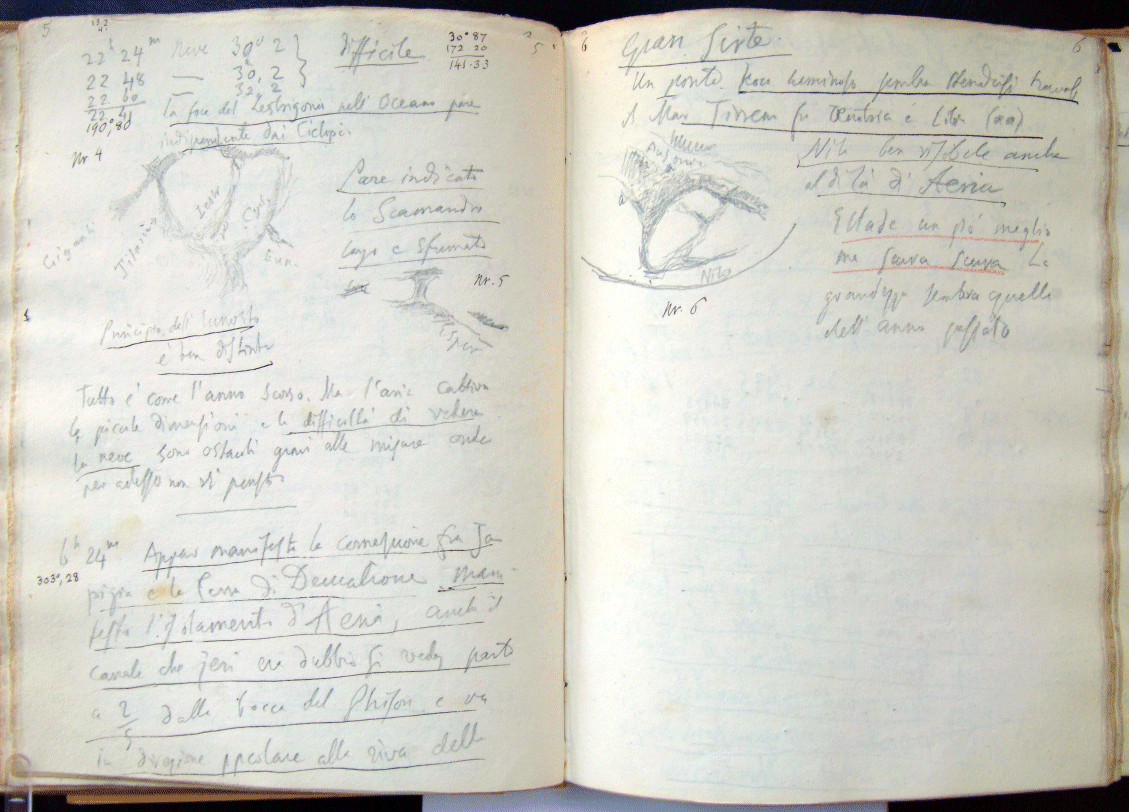 5
22h 24m Neve 30° 2
22 48 — 30, 2
22 60 32, 2
22 41
190°,80
difficile
30° 87
172 20
141.33
5
La foce del Lestrigone nell'Oceano pare
indipendente dai Ciclopi.
Nr 4
Giganti
Titani
Icar
Cicl.
Eun.
Pare indicato
lo Scamandro
largo e sfumato
Nr. 5
Principio dell'Eunosto
è ben distinto
Tutto è come l'anno scorso. Ma l'aria cattiva
le piccole dimensioni e la difficoltà di vedere
la neve sono ostacoli gravi alle misure onde
per adesso non vi penso
6h 24m Appar manifesta la connessione fra Ja
303°,28
pigia e la Terra di Deucalione mani
festo l'isolamento d'Aeria, anche il
canale che jeri era dubbio si vede, parte
a 2/5 dalla bocca del Phison e va
in direzione ppcolare alla riva della
6
Gran Sirte.
6
Un ponte poco luminoso sembra stendersi traverso
il Mar Tirreno fra Oenotria e Libia
Nilo ben visibile anche
al di là di Aeria
Nilo
Nr. 6
Ellade un po' meglio
ma scura scura La
grandezza sembra quella
dell'anno passato